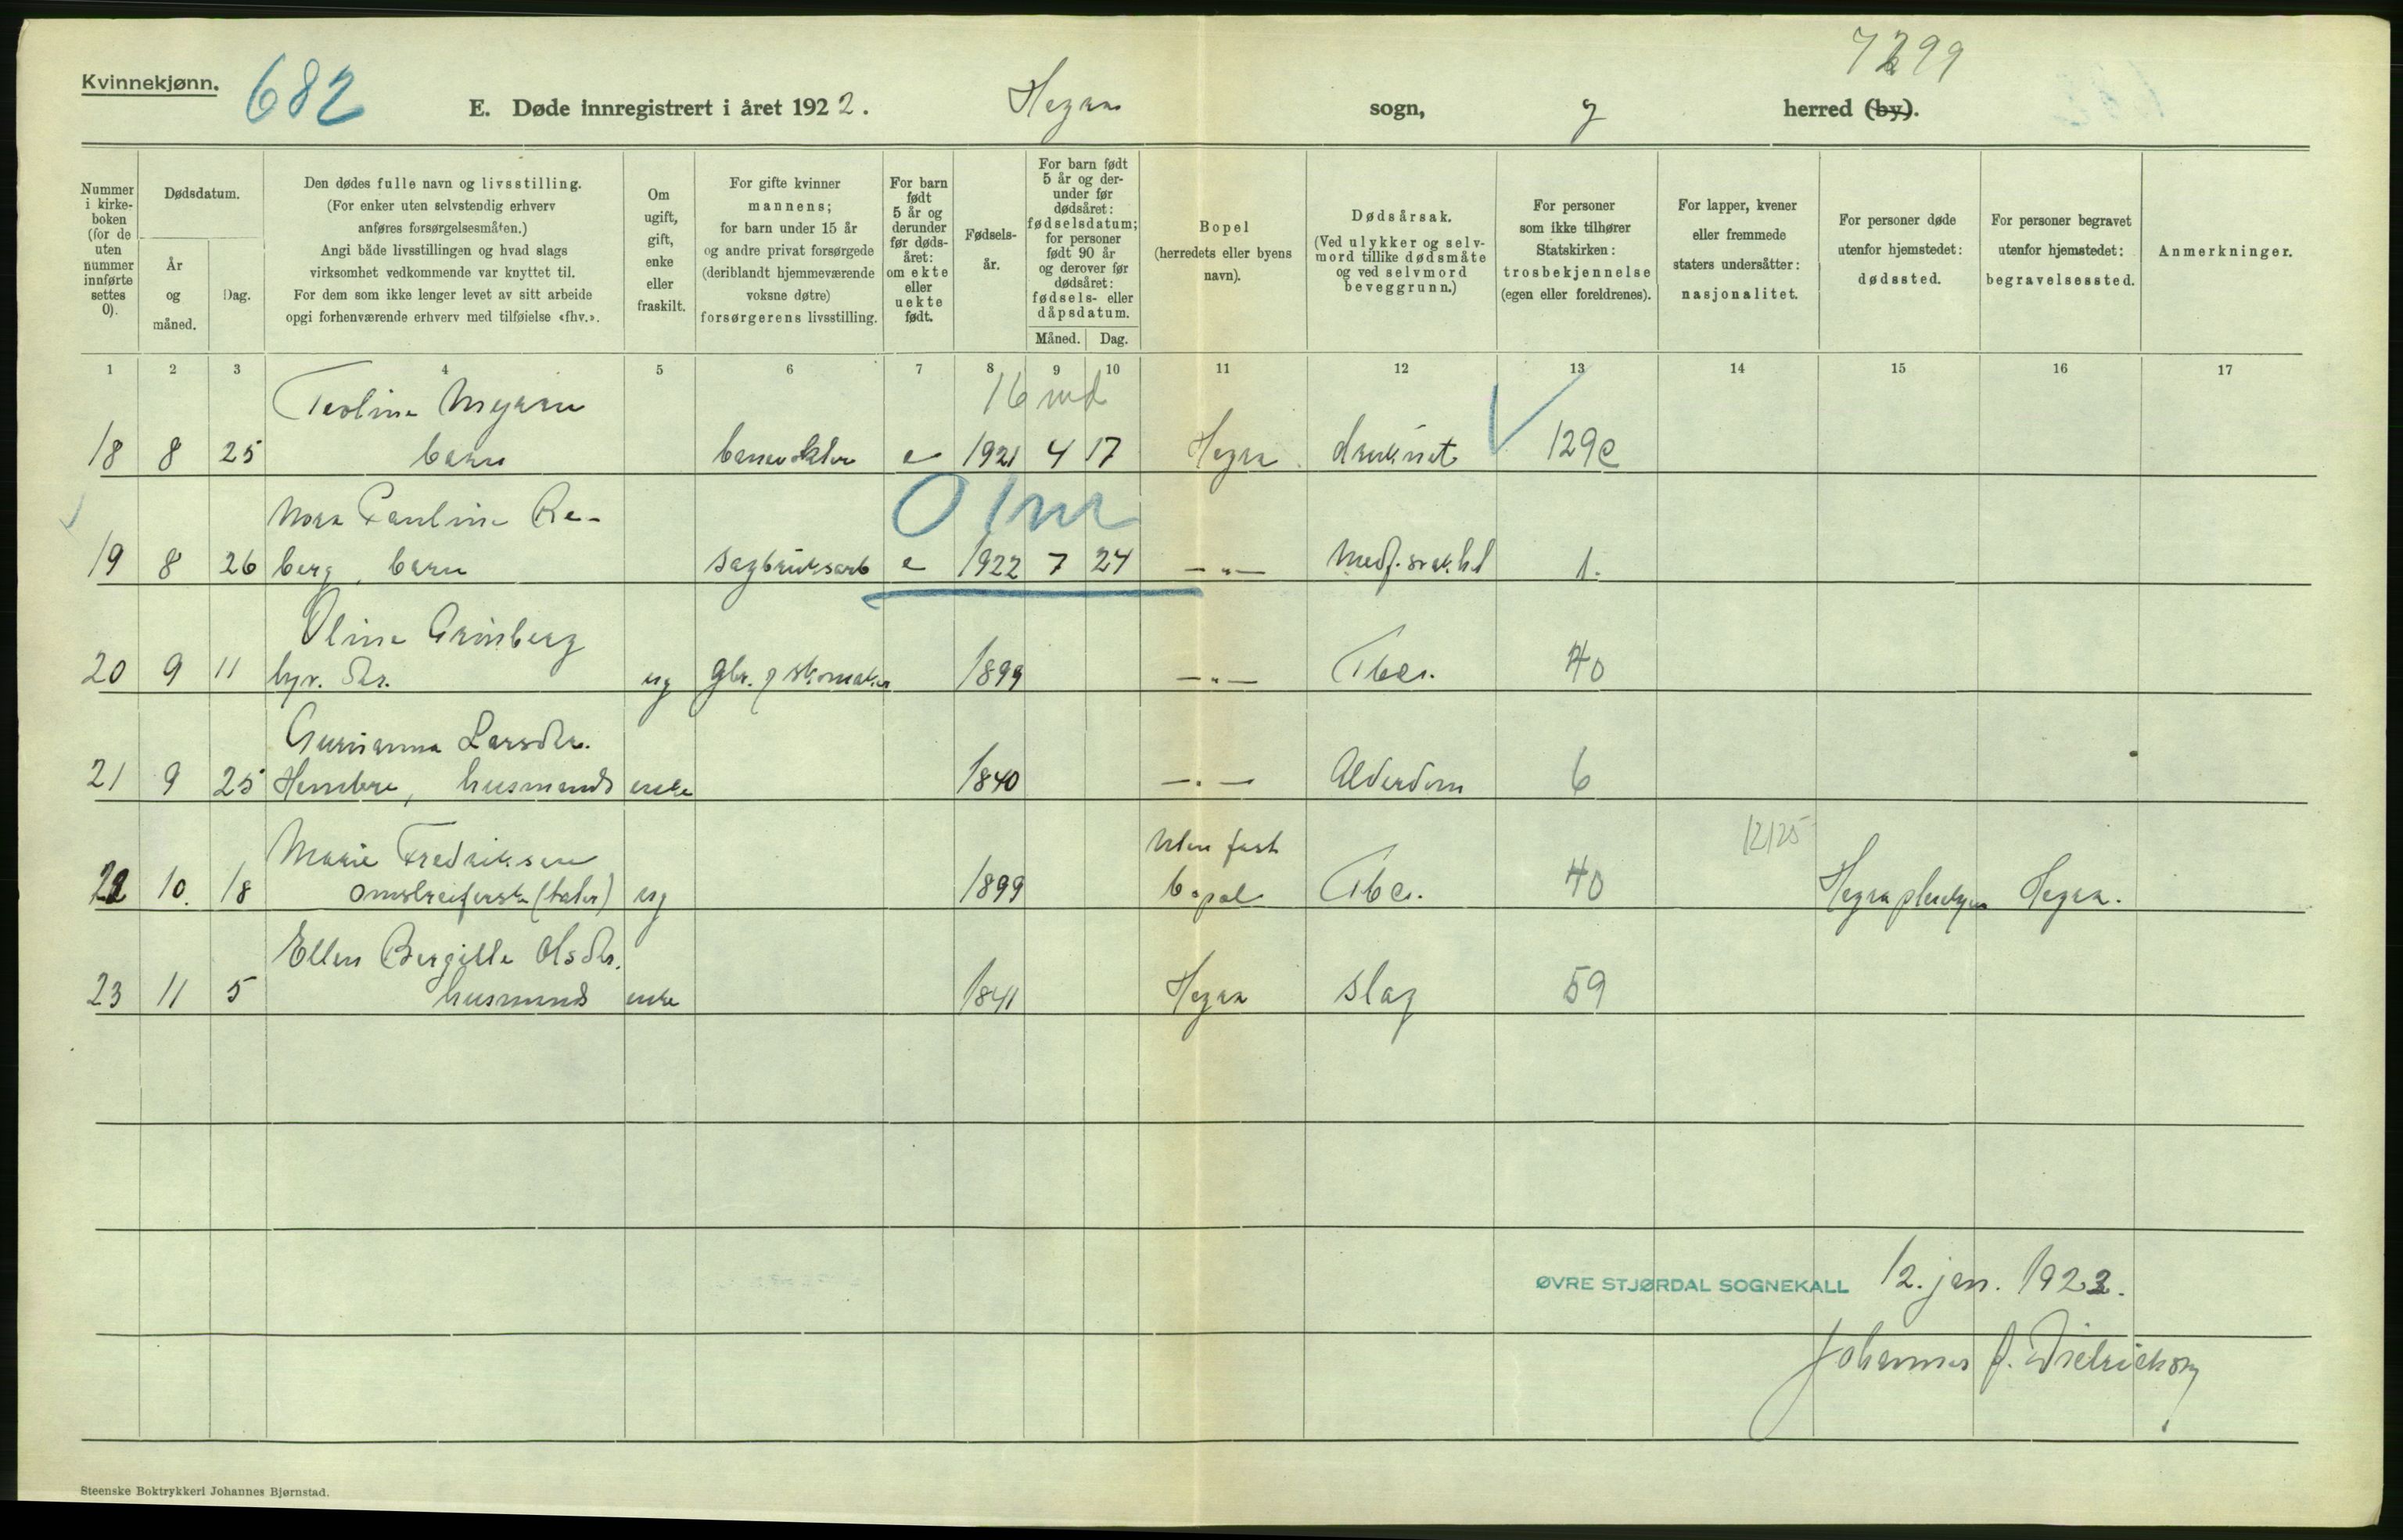 Kvinnekjønn.
682
7299
E. Døde innregistrert i året 1922. Hegra sogn, herred (by).
Nummer i kirkeboken (for de uten nummer innførte settes 0).
Dødsdatum.
År og måned.
Dag.
Den dødes fulle navn og livsstilling.
(For enker uten selvstendig erhverv
anføres forsørgelsesmåten.)
Angi både livsstillingen og hvad slags
virksomhet vedkommende var knyttet til.
For dem som ikke lenger levet av sitt arbeide
opgi forhenværende erhverv med tilføielse «fhv.».
Om ugift, gift, enke eller fraskilt.
For gifte kvinner
mannens;
for barn under 15 år
og andre privat forsørgede
(deriblandt hjemmeværende
voksne døtre)
forsørgerens livsstilling.
For barn født 5 år og derunder før dødsåret: om ekte eller uekte født.
Fødselsår.
For barn født 5 år og derunder før dødsåret: fødselsdatum; for personer født 90 år og derover før dødsåret: fødsels- eller dåpsdatum.
Måned. Dag.
Bopel
(herredets eller byens
navn).
Dødsårsak.
(Ved ulykker og selvmord tillike dødsmåte og ved selvmord beveggrunn.)
For personer
som ikke tilhører
Statskirken:
trosbekjennelse
(egen eller foreldrenes).
For lapper, kvener
eller fremmede
staters undersåtter:
nasjonalitet.
For personer døde
utenfor hjemstedet:
dødssted.
For personer begravet
utenfor hjemstedet:
begravelsessted.
Anmerkninger.
1 2 3 4 5 6 7 8 9 10 11 12 13 14 15 16 17
16 md
18 8 25 barn e 1921 4 17 Hegra druknet 129c
0 1m
Nora Pauline Re-
19 8 26 berg, barn sagbruksarb e 1922 7 24 — " — Medf. svakh 1.
Oline Grinsberg
20 9 11 ug gbr. og skomaker 1899 — " — Tbc. 40
Gurianna Larsdtr.
21 9 25 husmands enke 1840 — " — Alderdom 6
Marie Fredriksen Uten fast 12125
22 10. 18 omstreiferske (tater) ug 1899 bopel Tbc. 40 Hegra pleiehjem Hegra.
Ellen Bergitte Olsdtr.
23 11 5 husmands enke 1841 Hegra slag 59
ØVRE STJØRDAL SOGNEKALL 12. jan. 1923.
Johannes
Steenske Boktrykkeri Johannes Bjørnstad.